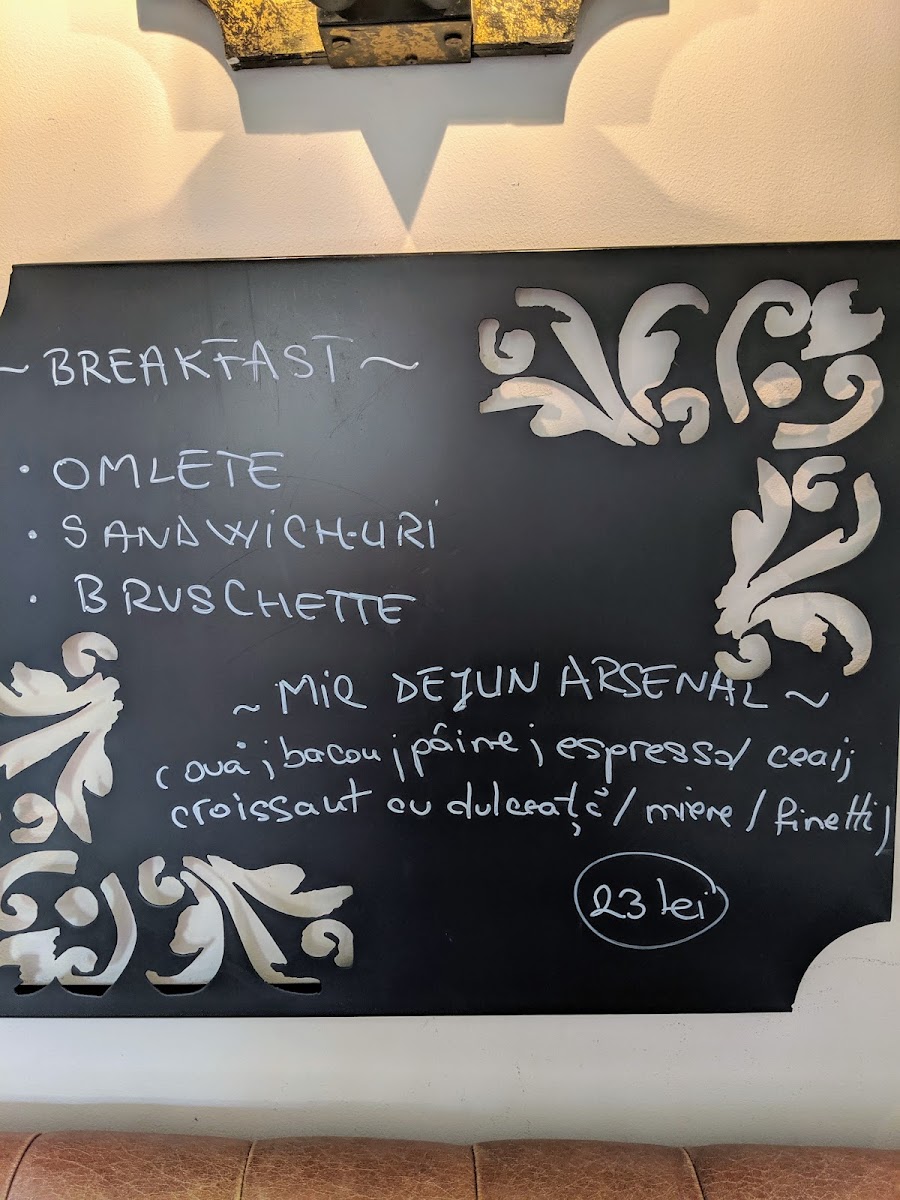 ~ BREAKFAST ~
· OMLETE
· SANDWICH-URI
· BRUSCHETTE
~ MIR DEJUN ARSENAL ~
(ouă; bacon; pâine; espresso/ ceai;
croissant cu dulceață / miere / finetti)
23 lei